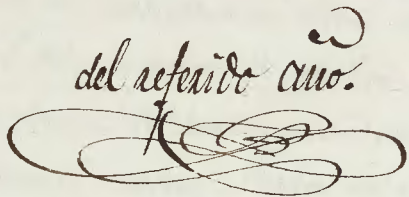 del referido año.